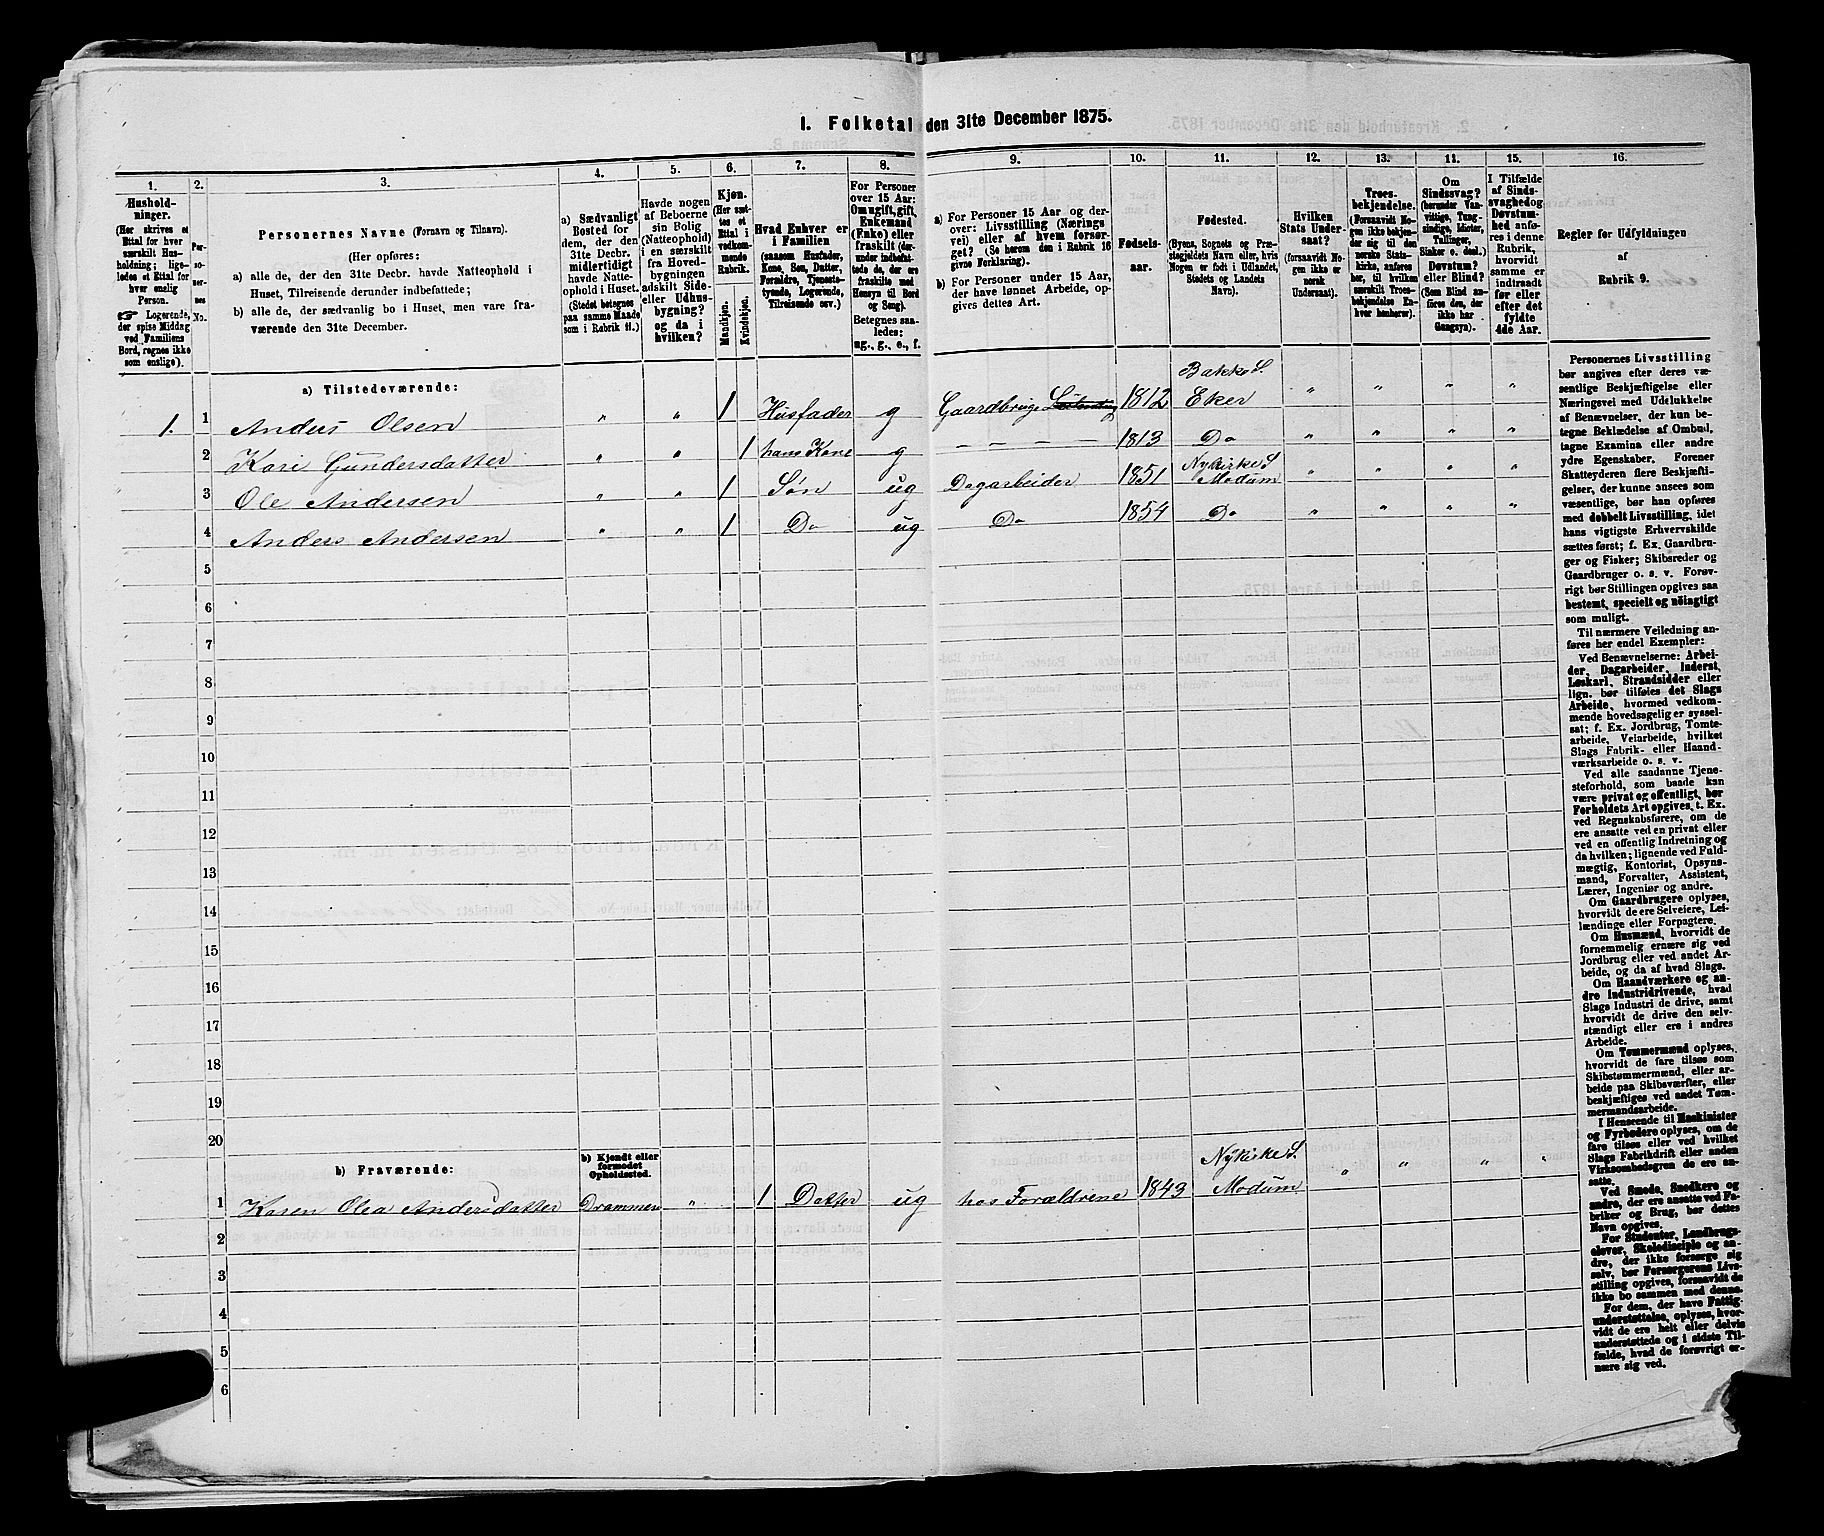 I. Folketal den 31te December 1875.
1. 2. 3. 4. 5. 6. 7. 8. 9. 10. 11. 12. 13. 14. 15. 16.
Husholdninger.
(Her skrives et
Ettal for hver
særskilt Hus-
holdning; lige-
ledes et Ettal for
hver enslig
Person.
Logerende,
der spise Middag
ved Familiens
Bord, regnes ikke
som enslige).
Per-
so-
ner-
nes
No.
Personernes Navne (Fornavn og Tilnavn).
(Her opføres:
a) alle de, der den 31te Decbr. havde Natteophold i
Huset, Tilreisende derunder indbefattede;
b) alle de, der sædvanlig bo i Huset, men vare fra-
værende den 31te December.
a) Sædvanligt
Bosted for
dem, der den
31te Decbr.
midlertidigt
havde Natte-
ophold i Huset.
(Stedet betegnes
paa samme Maade
som i Rubrik 11.)
Havde nogen
af Beboerne
sin Bolig
(Natteophold)
i en særskilt
fra Hoved-
bygningen
adskilt Side-
eller Udhus-
bygning?
og da i
hvilken?
Kjøn.
(Her sæt-
tes et
Ettal i
vedkom-
mende
Rubrik.
Mandkjøn.
Kvindekjøn.
Hvad Enhver er
i Familien
(saasom Husfader,
Kone, Søn, Datter,
Forældre, Tjeneste-
tyende, Logerende,
Tilreisende osv.)
For Personer
over 15 Aar:
Om ugift, gift,
Enkemand
(Enke) eller
fraskilt (der-
under indbefat-
tede de, der ere
fraskilte med
Hensyn til Bord
og Seng).
Betegnes saa-
ledes:
ug., g., e., f.
a) For Personer 15 Aar og der-
over: Livsstilling (Nærings
vei) eller af hvem forsør-
get? (Se herom den i Rubrik 16
givne Forklaring).
b) For Personer under 15 Aar,
der have lønnet Arbeide, op-
gives dettes Art.
Fødsels-
aar.
Fødested.
(Byens, Sognets og Præ-
stegjeldets Navn eller, hvis
Nogen er født i Udlandet,
Stedets og Landets
Navn).
Hvilken
Stats Under-
saat?
(forsaavidt No-
gen ikke er
norsk
Undersaat).
Troes-
bekjendelse.
(Forsaavidt No-
gen ikke bekjen-
der sig til den
norske Stats-
kirke, anføres
her, til hvilken
særskilt Troes-
bekjendelse En-
hver henhører).
Om
Sindssvag?
(herunder Van-
vittige, Tung-
sindige, Idioter,
Tullinger,
Sinker o. desl.)
Døvstum?
eller Blind?
(Som Blind an-
føres den, der
ikke har
Gangsyn).
I Tilfælde
af Sinds-
svaghed og
Døvstum-
hed anfø-
res i denne
Rubrik,
hvorvidt
samme er
indtraadt
før eller
efter det
fyldte
4de Aar.
Regler for Udfyldningen
af
Rubrik 9.
a) Tilstedeværende:
1. 1 Anders Olsen " " 1 Husfader g Gaardbruger 1812 Bakke S. Eker " " " "
2 Kari Gundersdatter " " 1 hans Kone g – – – – 1813 Do " " " "
3 Ole Andersen " " 1 Søn ug Dagarbeider 1851 Nykirke S. Modum " " " "
4 Anders Andersen " " 1 Do ug Do 1854 Do " " " "
5
6
7
8
9
10
11
12
13
14
15
16
17
18
19
20
b) Fraværende:
b) Kjendt eller
formodet
Opholdssted.
1 Karen Olea Andersdatter Drammen " 1 Datter ug hos Forældrene 1843 Nykirke S. Modum " " " "
2
3
4
5
6
Personernes Livsstilling
bør angives efter deres væ-
sentlige Beskjæftigelse eller
Næringsvei med Udelukkelse
af Benævnelser, der kun be-
tegne Beklædelse af Ombud,
tagne Examina eller andre
ydre Egenskaber. Forener
Skatteyderen flere Beskjæfti-
gelser, der kunne ansees som
væsentlige, bør han opføres
med dobbelt Livsstilling, idet
hans vigtigste Erhvervskilde
sættes først; f. Ex. Gaardbru-
ger og Fisker; Skibsreder og
Gaardbruger o. s. v. Forøv-
rigt bør Stillingen opgives saa
bestemt, specielt og nöiagtigt
som muligt.
Til nærmere Veiledning an-
føres her endel Exempler:
Ved Benævnelserne: Arbei-
der, Dagarbeider, Inderst,
Løskarl, Strandsidder eller
lign. bør tilføies det Slags
Arbeide, hvormed vedkom-
mende hovedsagelig er syssel-
sat; f. Ex. Jordbrug, Tomte-
arbeide, Veiarbeide, hvilket
Slags Fabrik- eller Haand-
værksarbeide o. s. v.
Ved alle saadanne Tjene-
steforhold, som baade kan
være privat og offentligt, bør
Forholdets Art opgives, t. Ex.
ved Regnskabsførere, om de
ere ansatte ved en privat eller
ved en offentlig Indretning og
da hvilken; lignende ved Fuld-
mægtig, Kontorist, Opsyns-
mand, Forvalter, Assistent,
Lærer, Ingeniør og andre.
Om Gaardbrugere oplyses,
hvorvidt de ere Selveiere, Lei-
lændinge eller Forpagtere.
Om Husmænd, hvorvidt de
fornemmelig ernære sig ved
Jordbrug eller ved andet Ar-
beide, og da af hvad Slags.
Om Haandværkere og an-
dre Industridrivende, hvad
Slags Industri de drive, samt
hvorvidt de drive den selv-
stændigt eller ere i andres
Arbeide.
Om Tømmermænd oplyses,
hvorvidt de fare tilsøs som
Skibstømmermænd, eller ar-
beide paa Skibsværfter, eller
beskjæftiges ved andet Tøm-
mermandsarbeide.
I Henseende til Maskinister
og Fyrbødere oplyses, om de
fare tilsøs eller ved hvilket
Slags Fabrikdrift eller anden
Virksomhedsgren de ere an-
satte.
Ved Smede, Snedkere og
andre, der ere ansatte ved Fa-
briker og Brug, bør dettes
Navn opgives.
For Studenter, Landbrugs-
elever, Skoledisciple og an-
dre, der ikke forsørge sig
selv, bør Forsørgerens Livs-
stilling opgives, forsaavidt de
ikke bo sammen med denne.
For dem, der have Fattig-
understøttelse, oplyses, hvor-
vidt de ere helt eller delvis
understøttede og i sidste Til-
fælde, hvad de forøvrigt er-
nære sig ved.